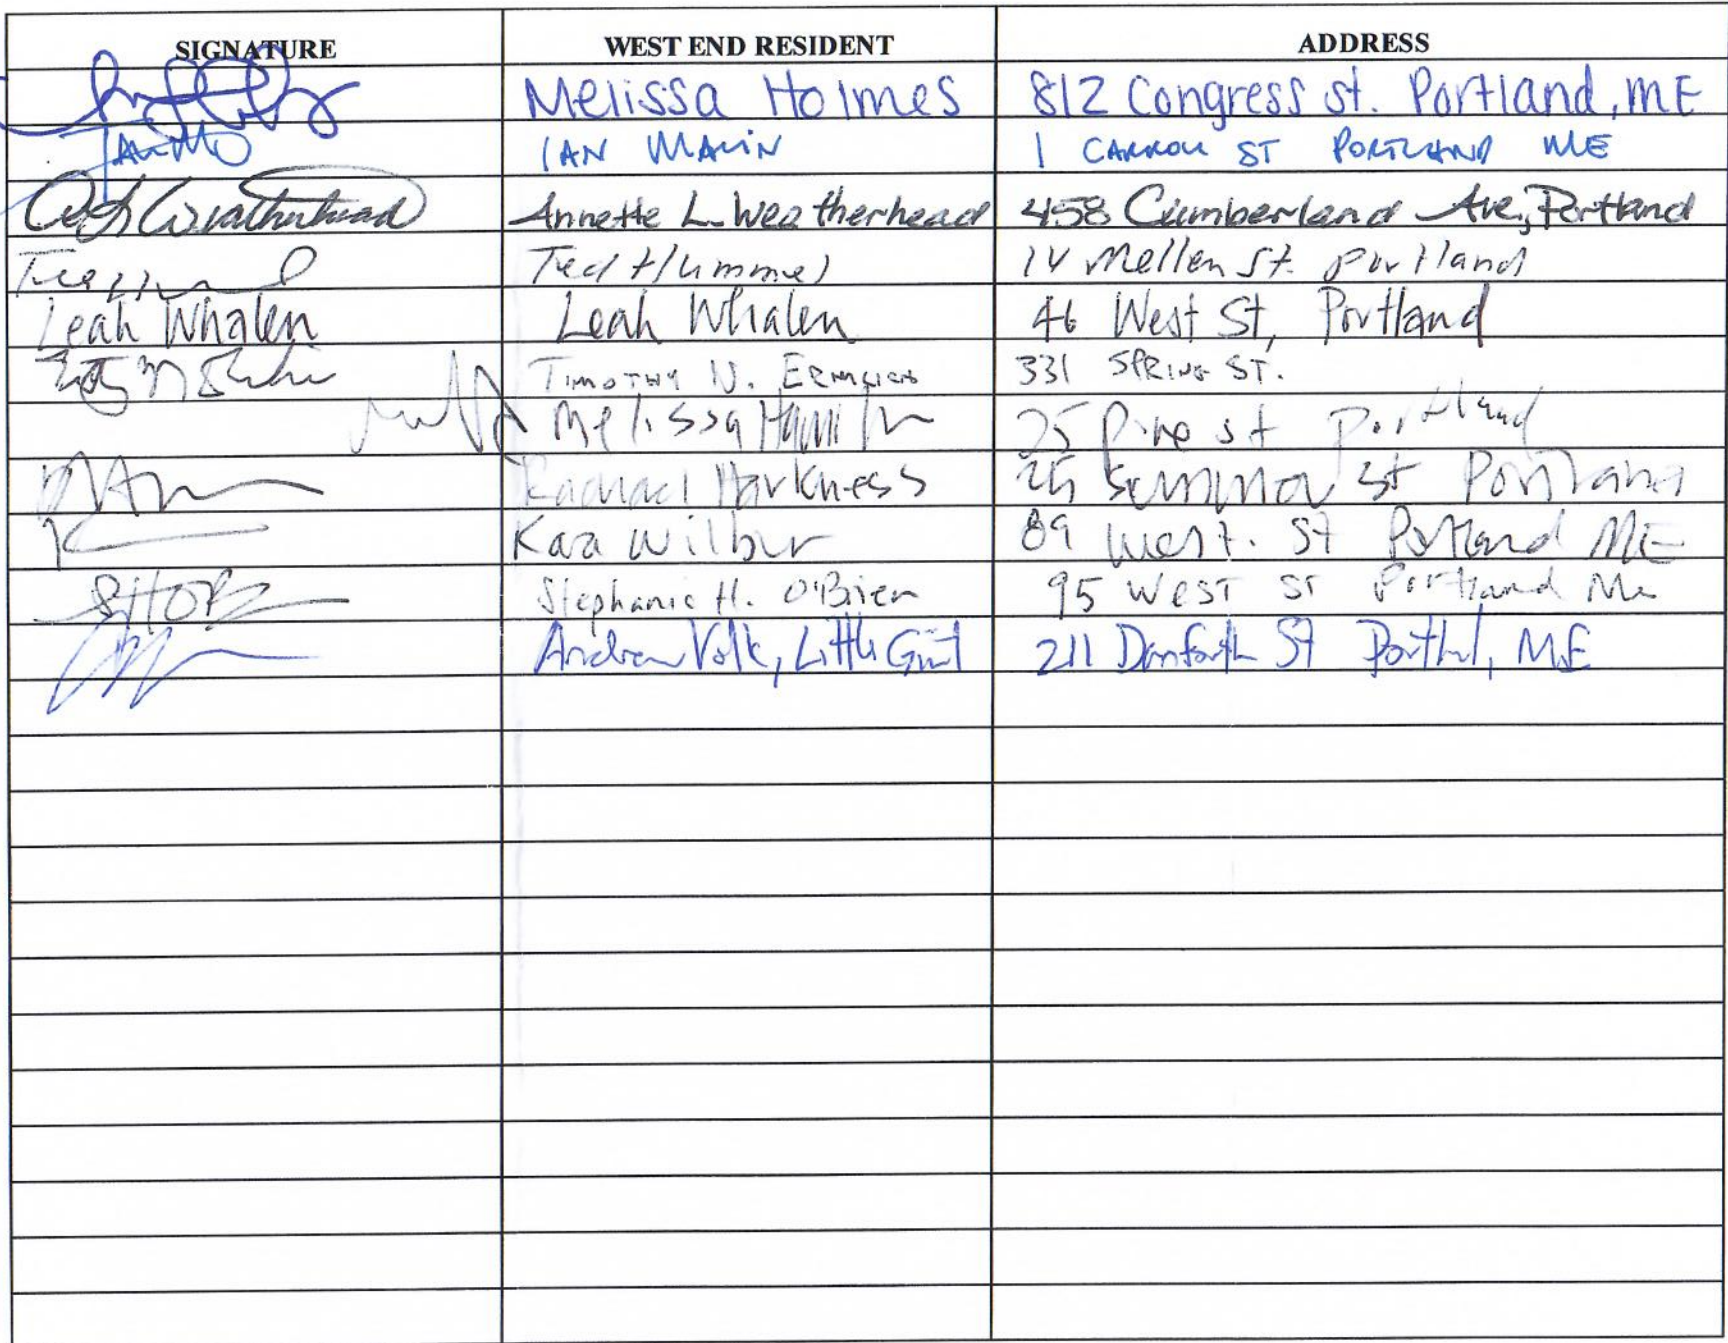 SIGNATURE WEST END RESIDENT ADDRESS
Melissa Holmes 812 Congress st. Portland, ME
IAN 1 ST PORTLAND ME
Weatherhead Annette L. Weatherhead 458 Cumberland Ave, Portland
Ted Hummel 14 Mellen St. Portland
Leah Whalen Leah Whalen 46 West St, Portland
TIMOTHY N. 331 SPRING ST.
Melissa 25 Pine st Portland
Rachael Harkness St Portland
Kara Wilbur 89 West. St Portland ME
SHOB Stephanie H. O'Brien 95 WEST ST Portland Me
Andrew Volk, Little Giant 211 Danforth St Portland, ME